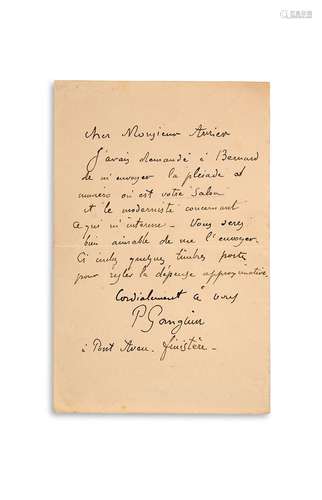 Cher Monsieur Aurier
J'avais demandé à Bernard
de m'envoyer la pléiade et
numéro où est votre Salon
et le moderniste concernant
ce qui m'intéresse - Vous serez
bien aimable de me l'envoyer.
Ci inclu quelques timbres poste
pour régler la dépense approximative
Cordialement à vous
P Gauguin
à Pont Aven. finistère -